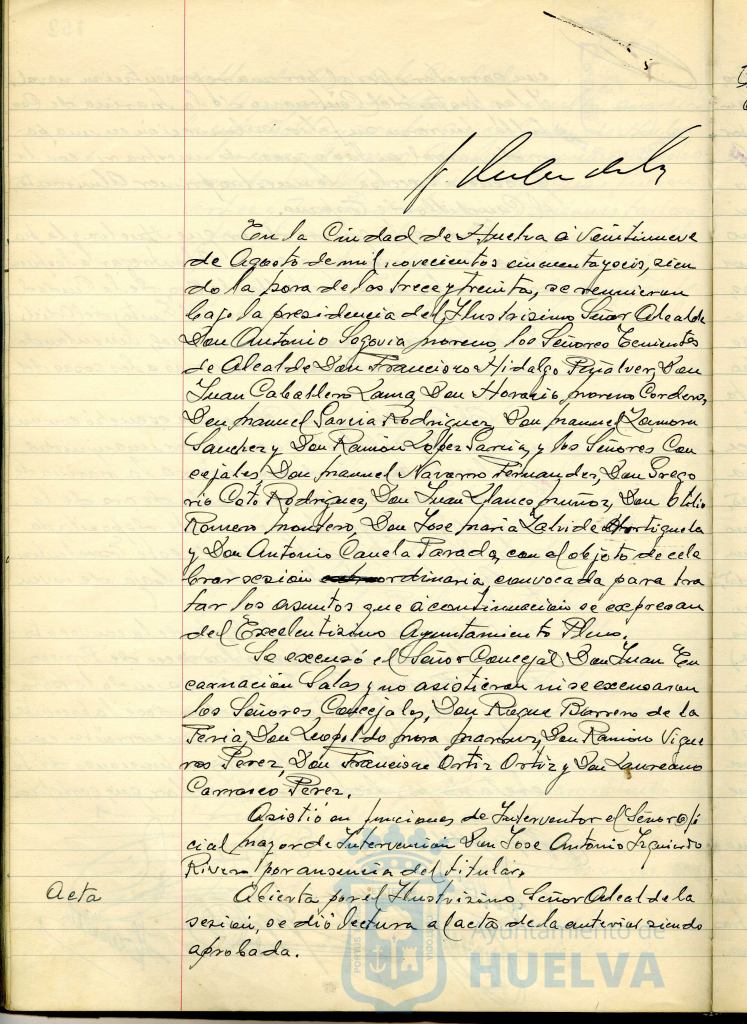 En la Ciudad de Huelva a veintinueve
de Agosto de mil novecientos cincuenta y seis, sien
do la hora de las trece y treinta, se reunieron
bajo la presidencia del Ilustrisimo Señor Alcalde
Don Antonio Segovia Moreno, los Señores Tenientes
de Alcalde Don Francisco Hidalgo Peñalver, Don
Juan Caballero Lama, Don Horacio Moreno Cordero,
Don Manuel Garcia Rodriguez, Don Manuel Zamora
Sanchez y Don Ramón López Garcia, y los Señores Con
cejales, Don Manuel Navarro Fernandez, Don Grego
rio Coto Rodriguez, Don Juan Llanco Muñoz, Don Otilio
Romero Montero, Don Jose Maria Zalvide Hortiguela
y Don Antonio Canela Parada, con el objeto de cele
brar sesión ordinaria, convocada para tra
tar los asuntos que a continuación se expresan
del Excelentisimo Ayuntamiento Pleno.
Se excusó el Señor Concejal, Don Juan En
carnación Salas y no asistieron ni se excusaron
los Señores Concejales, Don Roque Barrero de la
Feria, Don Leopoldo Mora Don Ramon Vigue
ros Perez, Don Francisco Ortiz Ortiz y Don Laureano
Carrasco Perez.
Asistió en funciones de Interventor el Señor Ofi
cial mayor de Intervención Don Jose Antonio Izquierdo
Rivera por ausencia del titular.
Acta
Abierta por el Ilustrisimo Señor Alcalde la
sesion, se dió lectura al acta de la anterior siendo
aprobada.
Ayuntamiento de
HUELVA